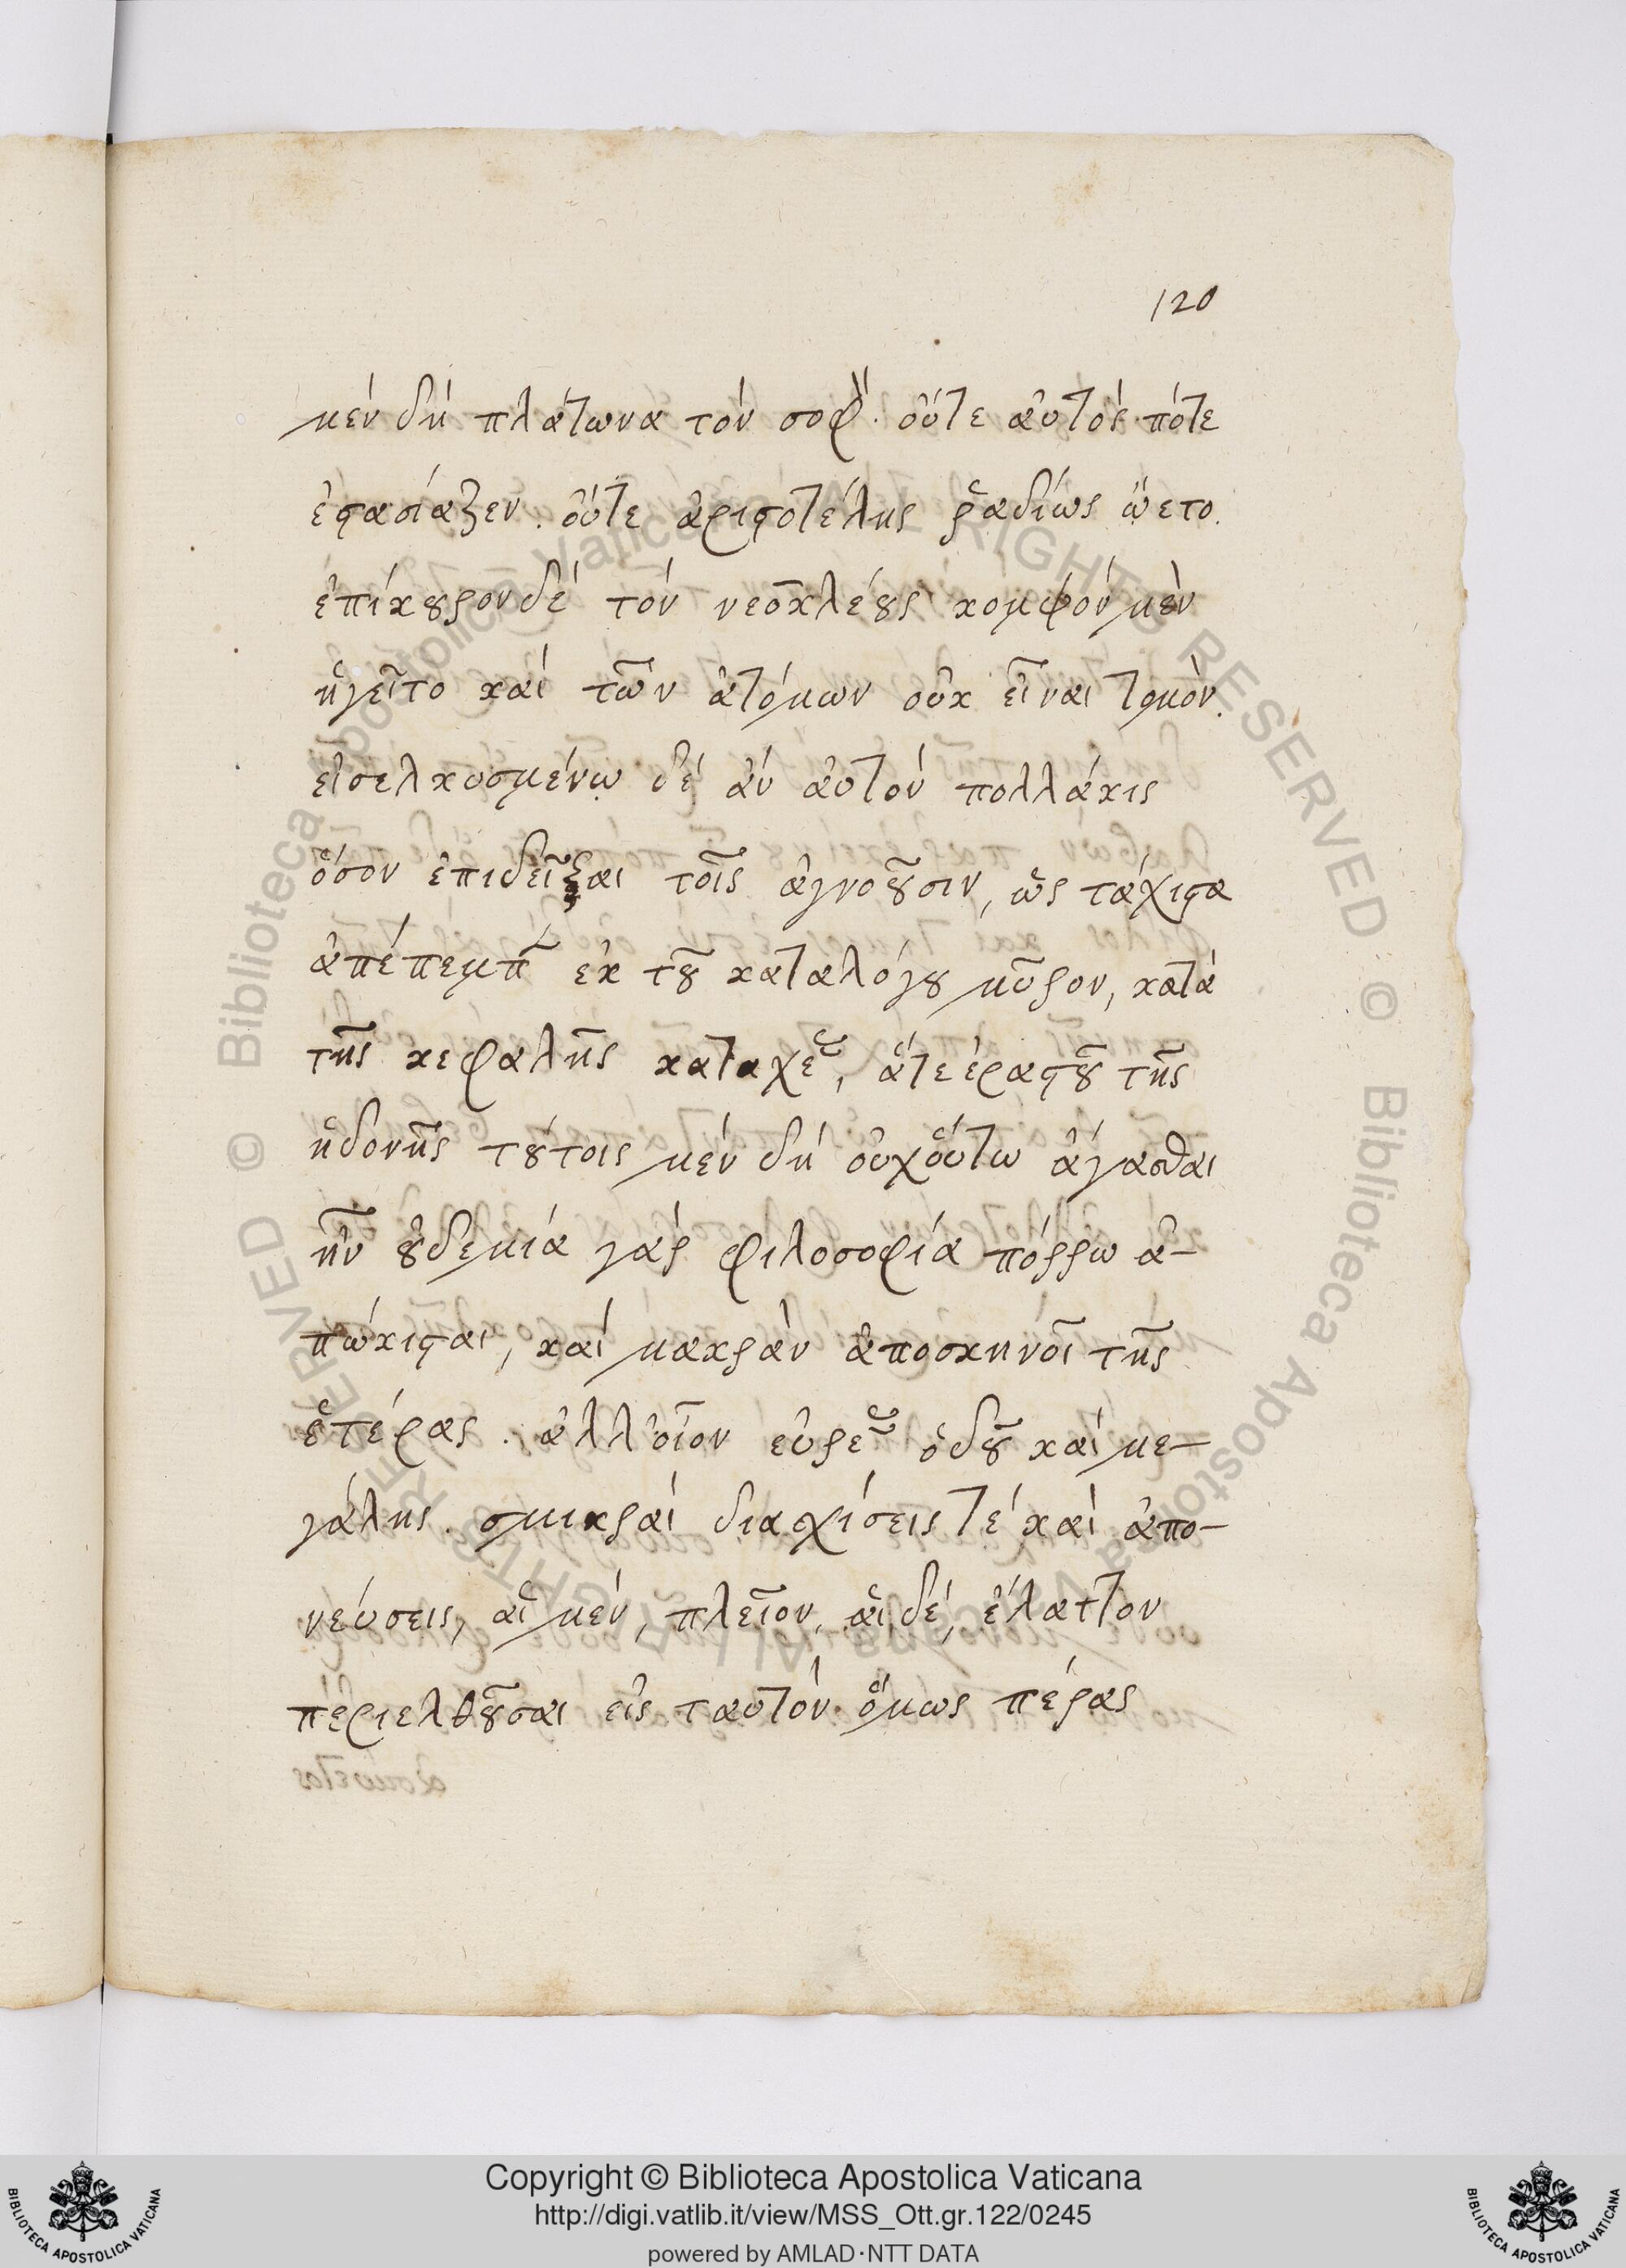 120
μὲν δὴ πλάτωνα τὸν σοφ. οὔτε αὐτὸς πότε
ἐστασίαζεν. οὔτε ἀριστοτέλης ῥαδίως ᾤετο.
ἐπίκουρον δὲ τὸν νεοκλέους κομψὸν μὲν
ἡγεῖτο καὶ τῶν ἀτόμων οὐκ εἶναι
εἰσελκυσμένῳ δὲ ἂν αὐτὸν πολλάκις
ὅσον ἐπιδεῖξαι τοῖς ἀγνοοῦσιν, ὡς τάχιστα
ἀπέπεμπ ἐκ τοῦ καταλόγου μῦρον, κατὰ
τῆς κεφαλῆς καταχε, ἅτε ἐραστοῦ τῆς
ἡδονῆς τούτοις μὲν δὴ οὐχ οὕτω ἄγασθαι
ἦν οὐδεμία γὰρ φιλοσοφία πόρρω ἀ-
πώκισται, καὶ μακρὰν ἀποσκηνοῖ τῆς
ἑτέρας. ἀλλ οἷον εὐρε ὁδοῦ καὶ με-
γάλης. σμικραὶ διασχίσεις τὲ καὶ ἀπο-
νεύσεις, αἱ μὲν, πλεῖον, αἱ δὲ, ἔλαττον
περιελθοῦσαι εἰς ταυτὸν ὅμως πέρας
Copyright © Biblioteca Apostolica Vaticana
http://digi.vatlib.it/view/MSS_Ott.gr.122/0245
powered by AMLAD·NTT DATA
BIBLIOTECA APOSTOLICA VATICANA
BIBLIOTECA APOSTOLICA VATICANA